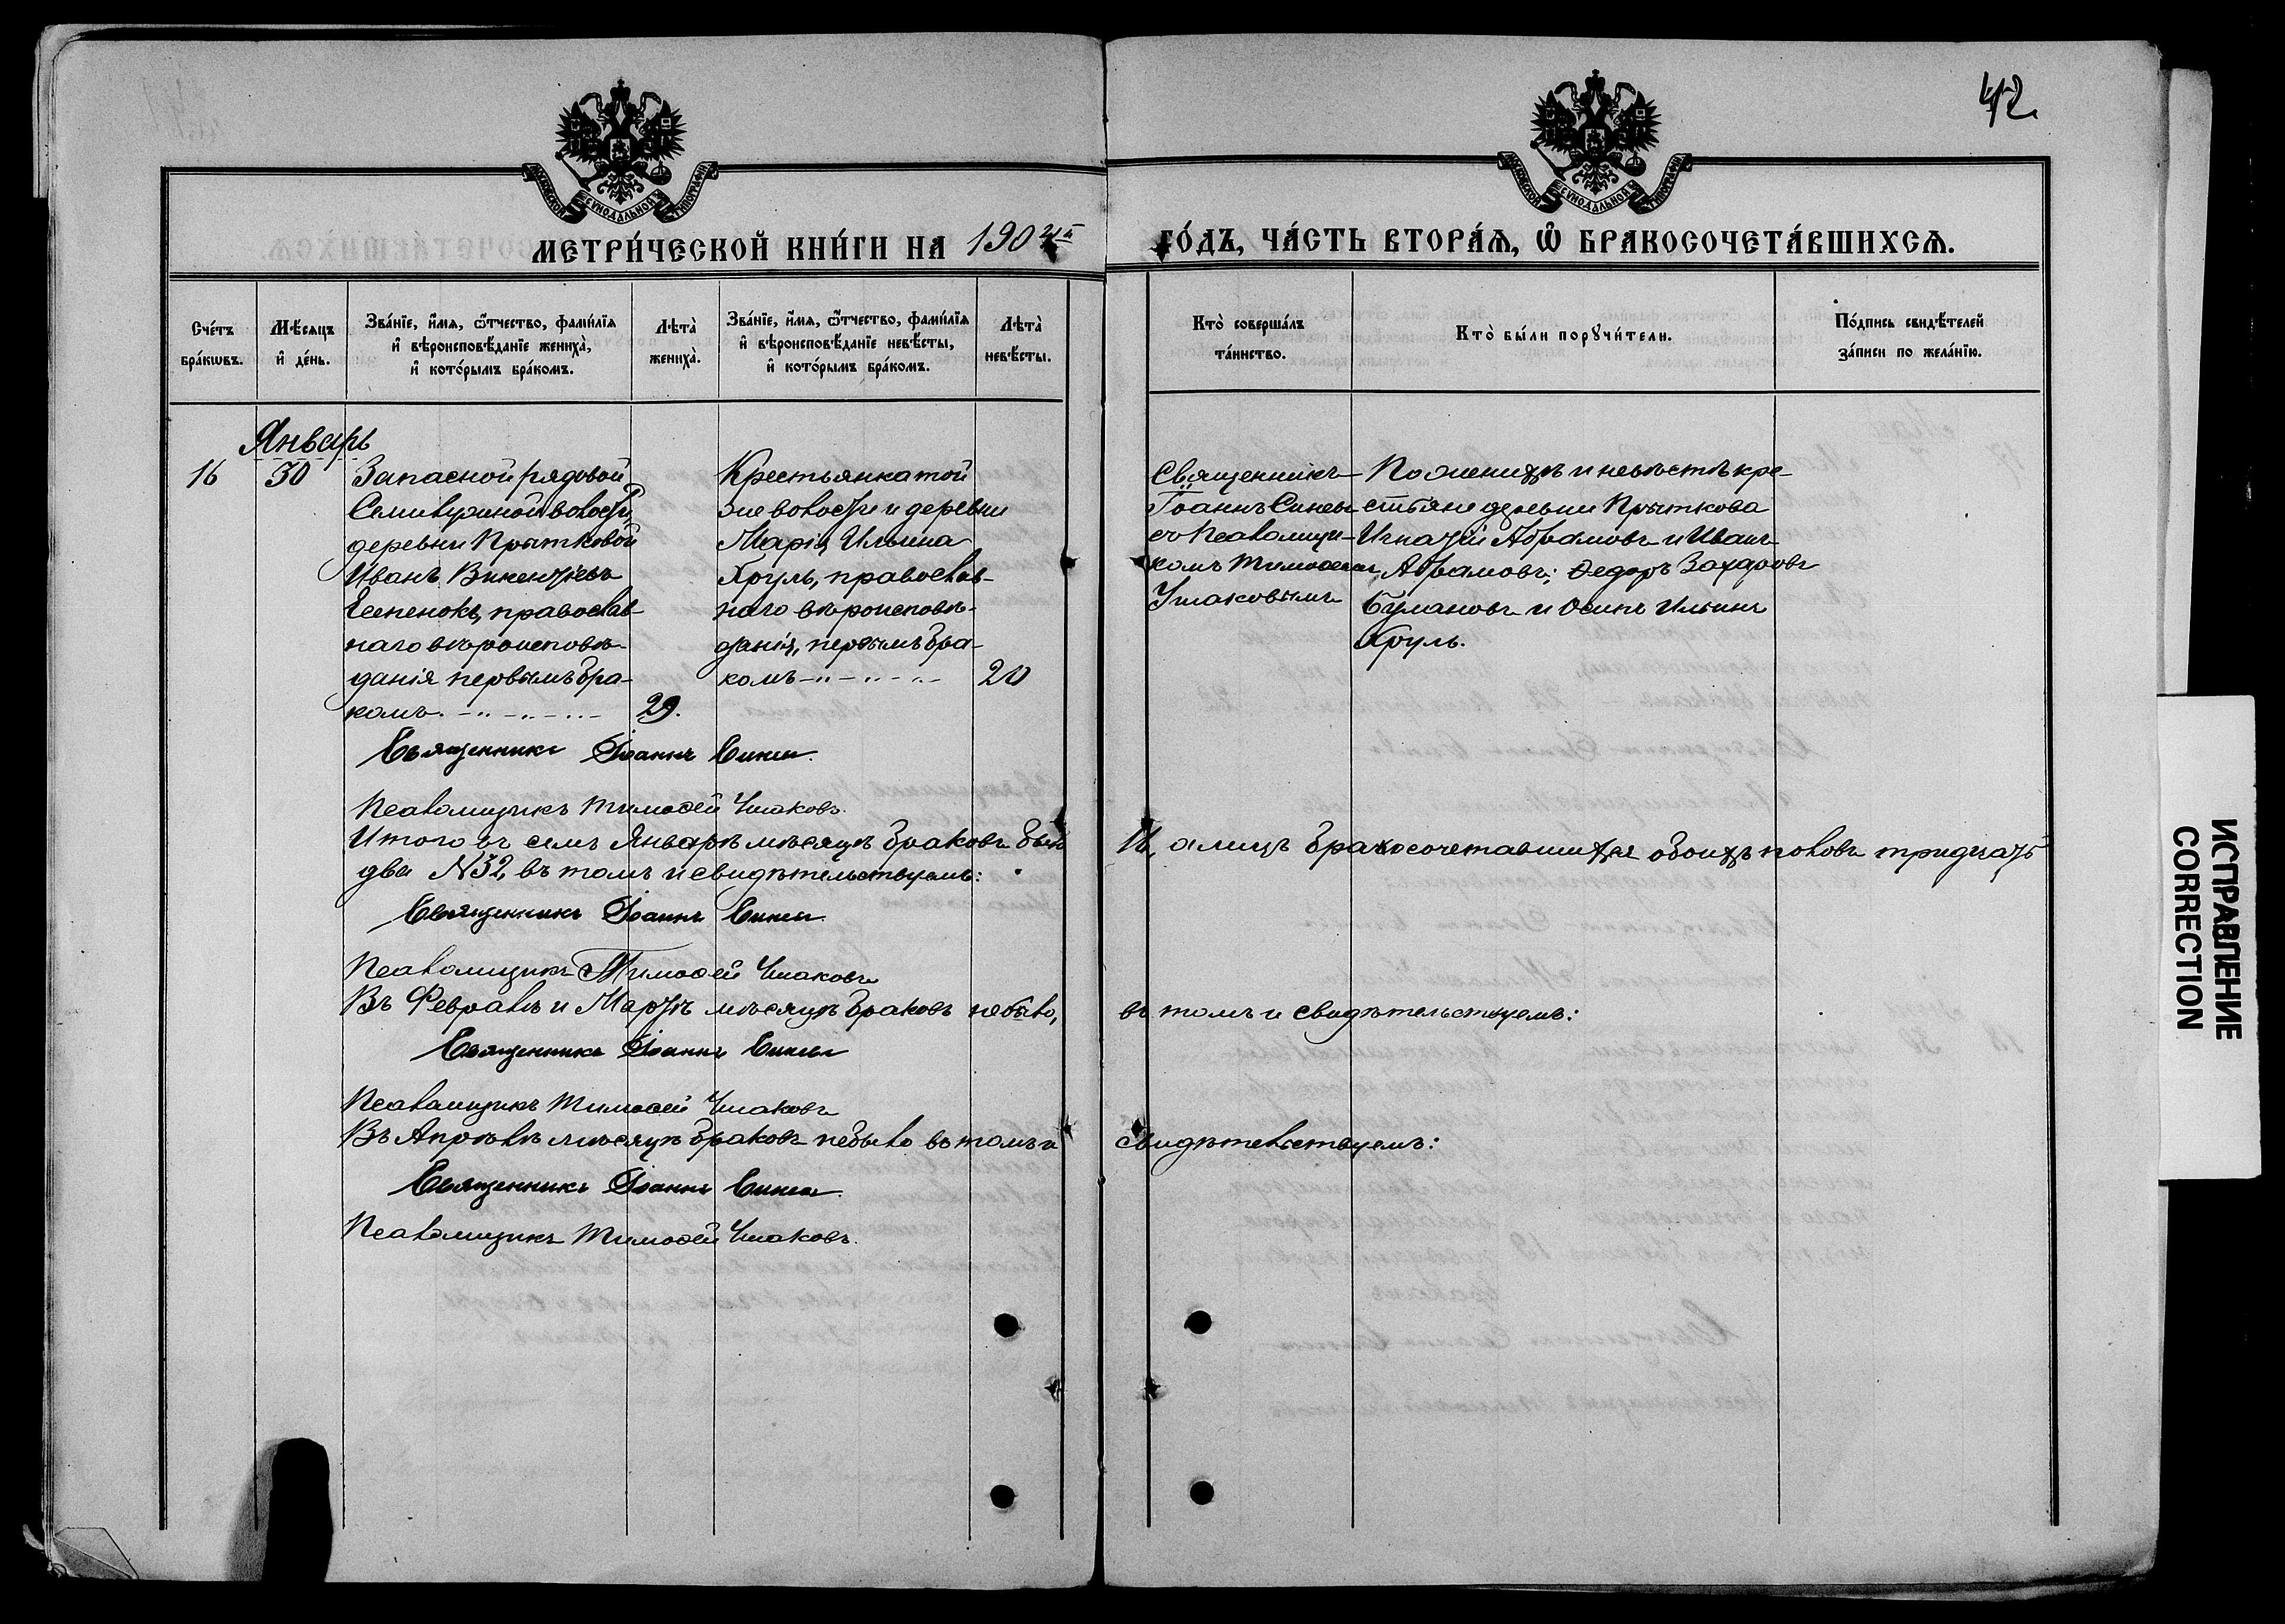 42
МЕТРИ́ЧЕСКОЙ КНИ́ГИ НА 190
ГО́ДЪ, ЧА́СТЬ ВТОРА́Я, Ѿ БРАКОСОЧЕТА́ВШИХСЯ.
Сче́тъ бра́кωвъ.
Мѣ́сяцъ и҆ де́нь.
Зва́нїе, и҆́мя, ѻ҆́тчество, фами́лїя и҆ вѣроисповѣ́данїе жениха̀, и҆ кото́рымъ бра́комъ.
Лѣта̀ жениха̀.
Зва́нїе, и҆́мя, ѻ҆́тчество, фами́лїя и҆ вѣроисповѣ́данїе невѣ́сты, и҆ кото́рымъ бра́комъ.
Лѣта̀ невѣ́сты.
Кто̀ соверша́лъ та́инство.
Кто̀ бы́ли порꙋчи́тели.
По́дпись свидѣ́телей за́писи по жела́нїю.
Январь
16
30
Запасной рядовой
волости,
деревни Прытковой
Иванъ Викентіевъ
православ-
наго вѣроисповѣ-
данія первымъ бра-
комъ.
29.
Крестьянка той
же волости и деревни
Марія Ильина
Хруль, православ-
наго вѣроисповѣ-
данія, первымъ бра-
комъ
20
Священникъ
Іоаннъ
съ Псаломщи-
комъ Тимоѳеемъ
Ушаковымъ
По женихѣ и невѣстѣ кре-
стьяне деревни Прыткова
Игнатій Абрамовъ и Иванъ
Абрамовъ; Ѳедоръ Захаровъ
и Осипъ Ильинъ
Хруль.
Священникъ Іоаннъ
Псаломщикъ Тимоѳей Ушаковъ.
Итого въ семъ Январѣ мѣсяцѣ браковъ было
16, а лицъ бракосочетавшихся обоихъ половъ тридцать
два №32, въ томъ и свидѣтельствуемъ:
Священникъ Іоаннъ
Псаломщикъ Тимоѳей Ушаковъ
Въ Февралѣ и Мартѣ мѣсяцѣ браковъ небыло,
въ томъ и свидѣтельствуемъ:
Священникъ Іоаннъ
Псаломщикъ Тимоѳей Ушаковъ
Въ Апрѣлѣ мѣсяцѣ браковъ небыло въ томъ и
свидѣтельствуемъ:
Священникъ Іоаннъ
Псаломщикъ Тимоѳей Ушаковъ.
ИСПРАВЛЕНИЕ
CORRECTION